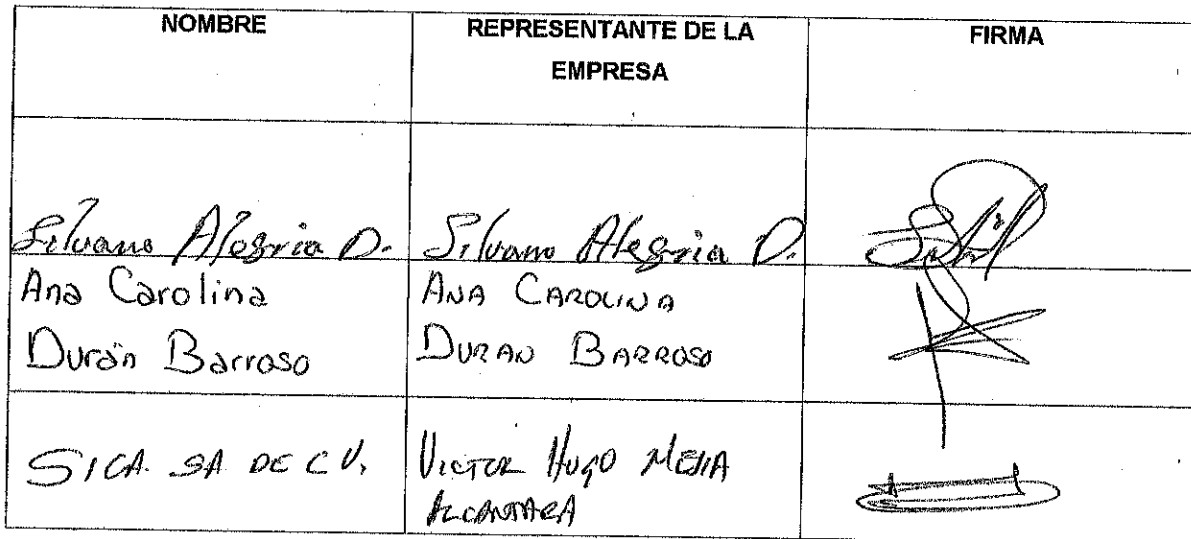 NOMBRE
REPRESENTANTE DE LA
EMPRESA
FIRMA
Silvano Alegria D.
Silvano Alegria D.
Ana Carolina
Durán Barroso
ANA CAROLINA
DURAN BARROSO
SICA. SA DE C V.
VICTOR HUGO MEJIA
ALCANTARA